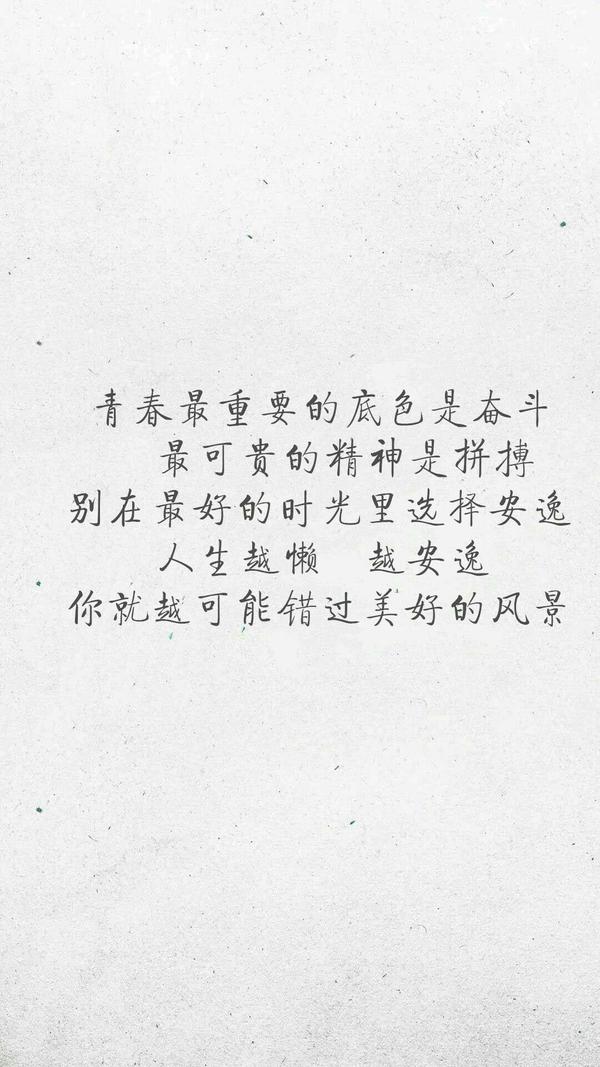 青春最重要的底色是奋斗
最可贵的精神是拼搏
别在最好的时光里选择安逸
人生越懒　越安逸
你就越可能错过美好的风景